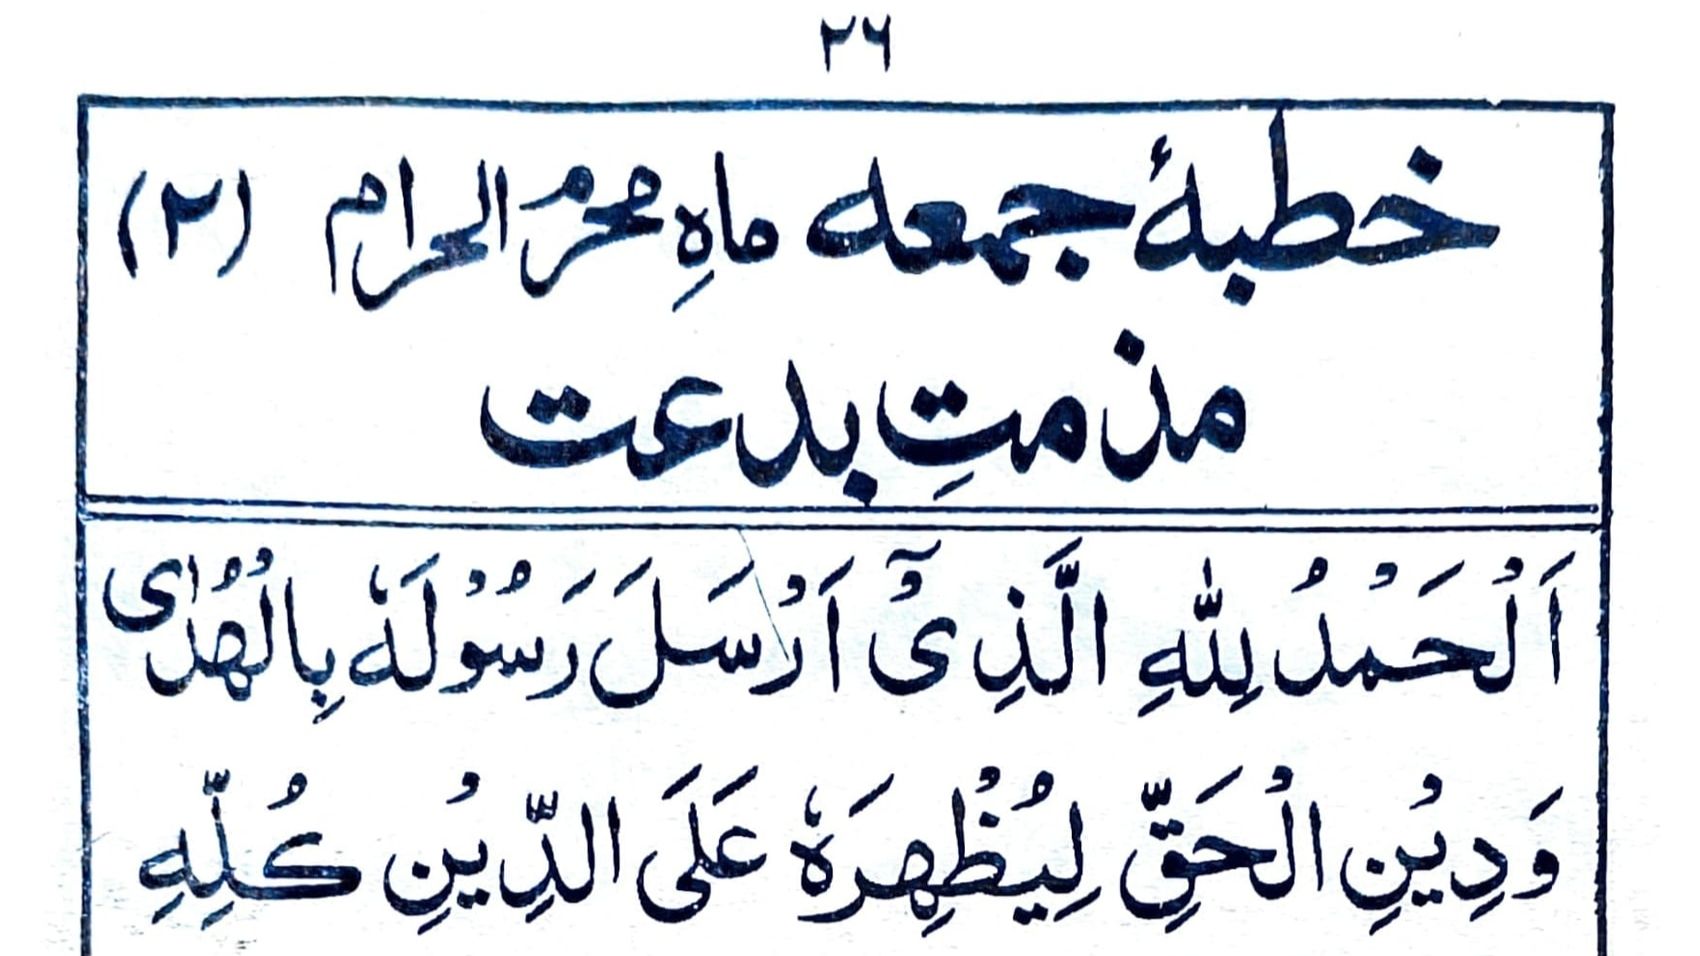 ۲۶
خطبۂ جمعہ ماہِ محرم الحرام (۲)
مذمتِ بدعت
اَلْحَمْدُ لِلّٰهِ الَّذِیْۤ اَرْسَلَ رَسُوْلَهٗ بِالْهُدٰی
وَدِیْنِ الْحَقِّ لِیُظْهِرَهٗ عَلَی الدِّیْنِ كُلِّهٖ